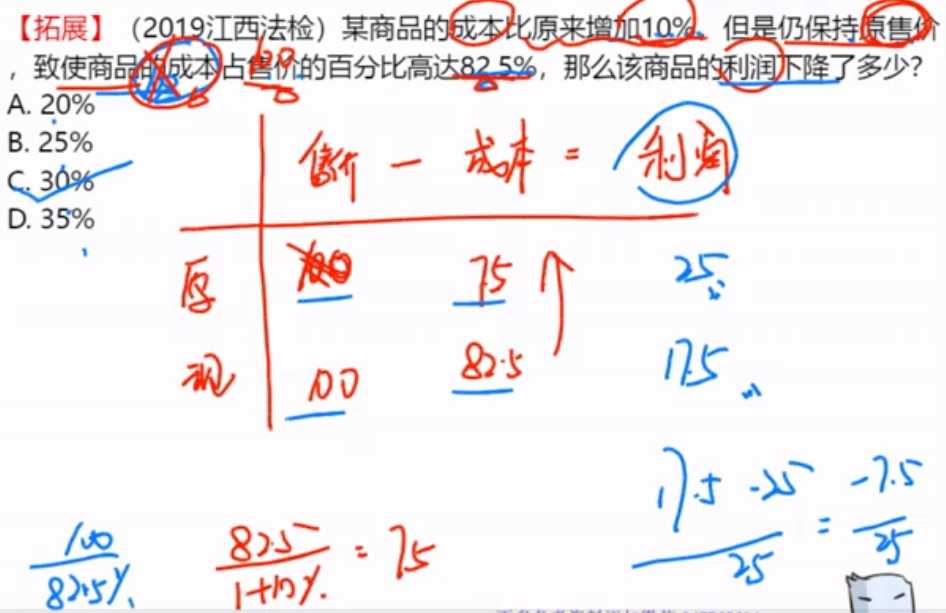 【拓展】（2019江西法检）某商品的成本比原来增加10%，但是仍保持原售价
，致使商品的成本占售价的百分比高达82.5%，那么该商品的利润下降了多少？
100
A. 20%
B. 25%
C. 30%
D. 35%
售价 - 成本 = 利润
原 100 75 25
现 100 82.5 17.5
17.5-25/25 = -7.5/25
100/82.5% 82.5/1+10% = 75